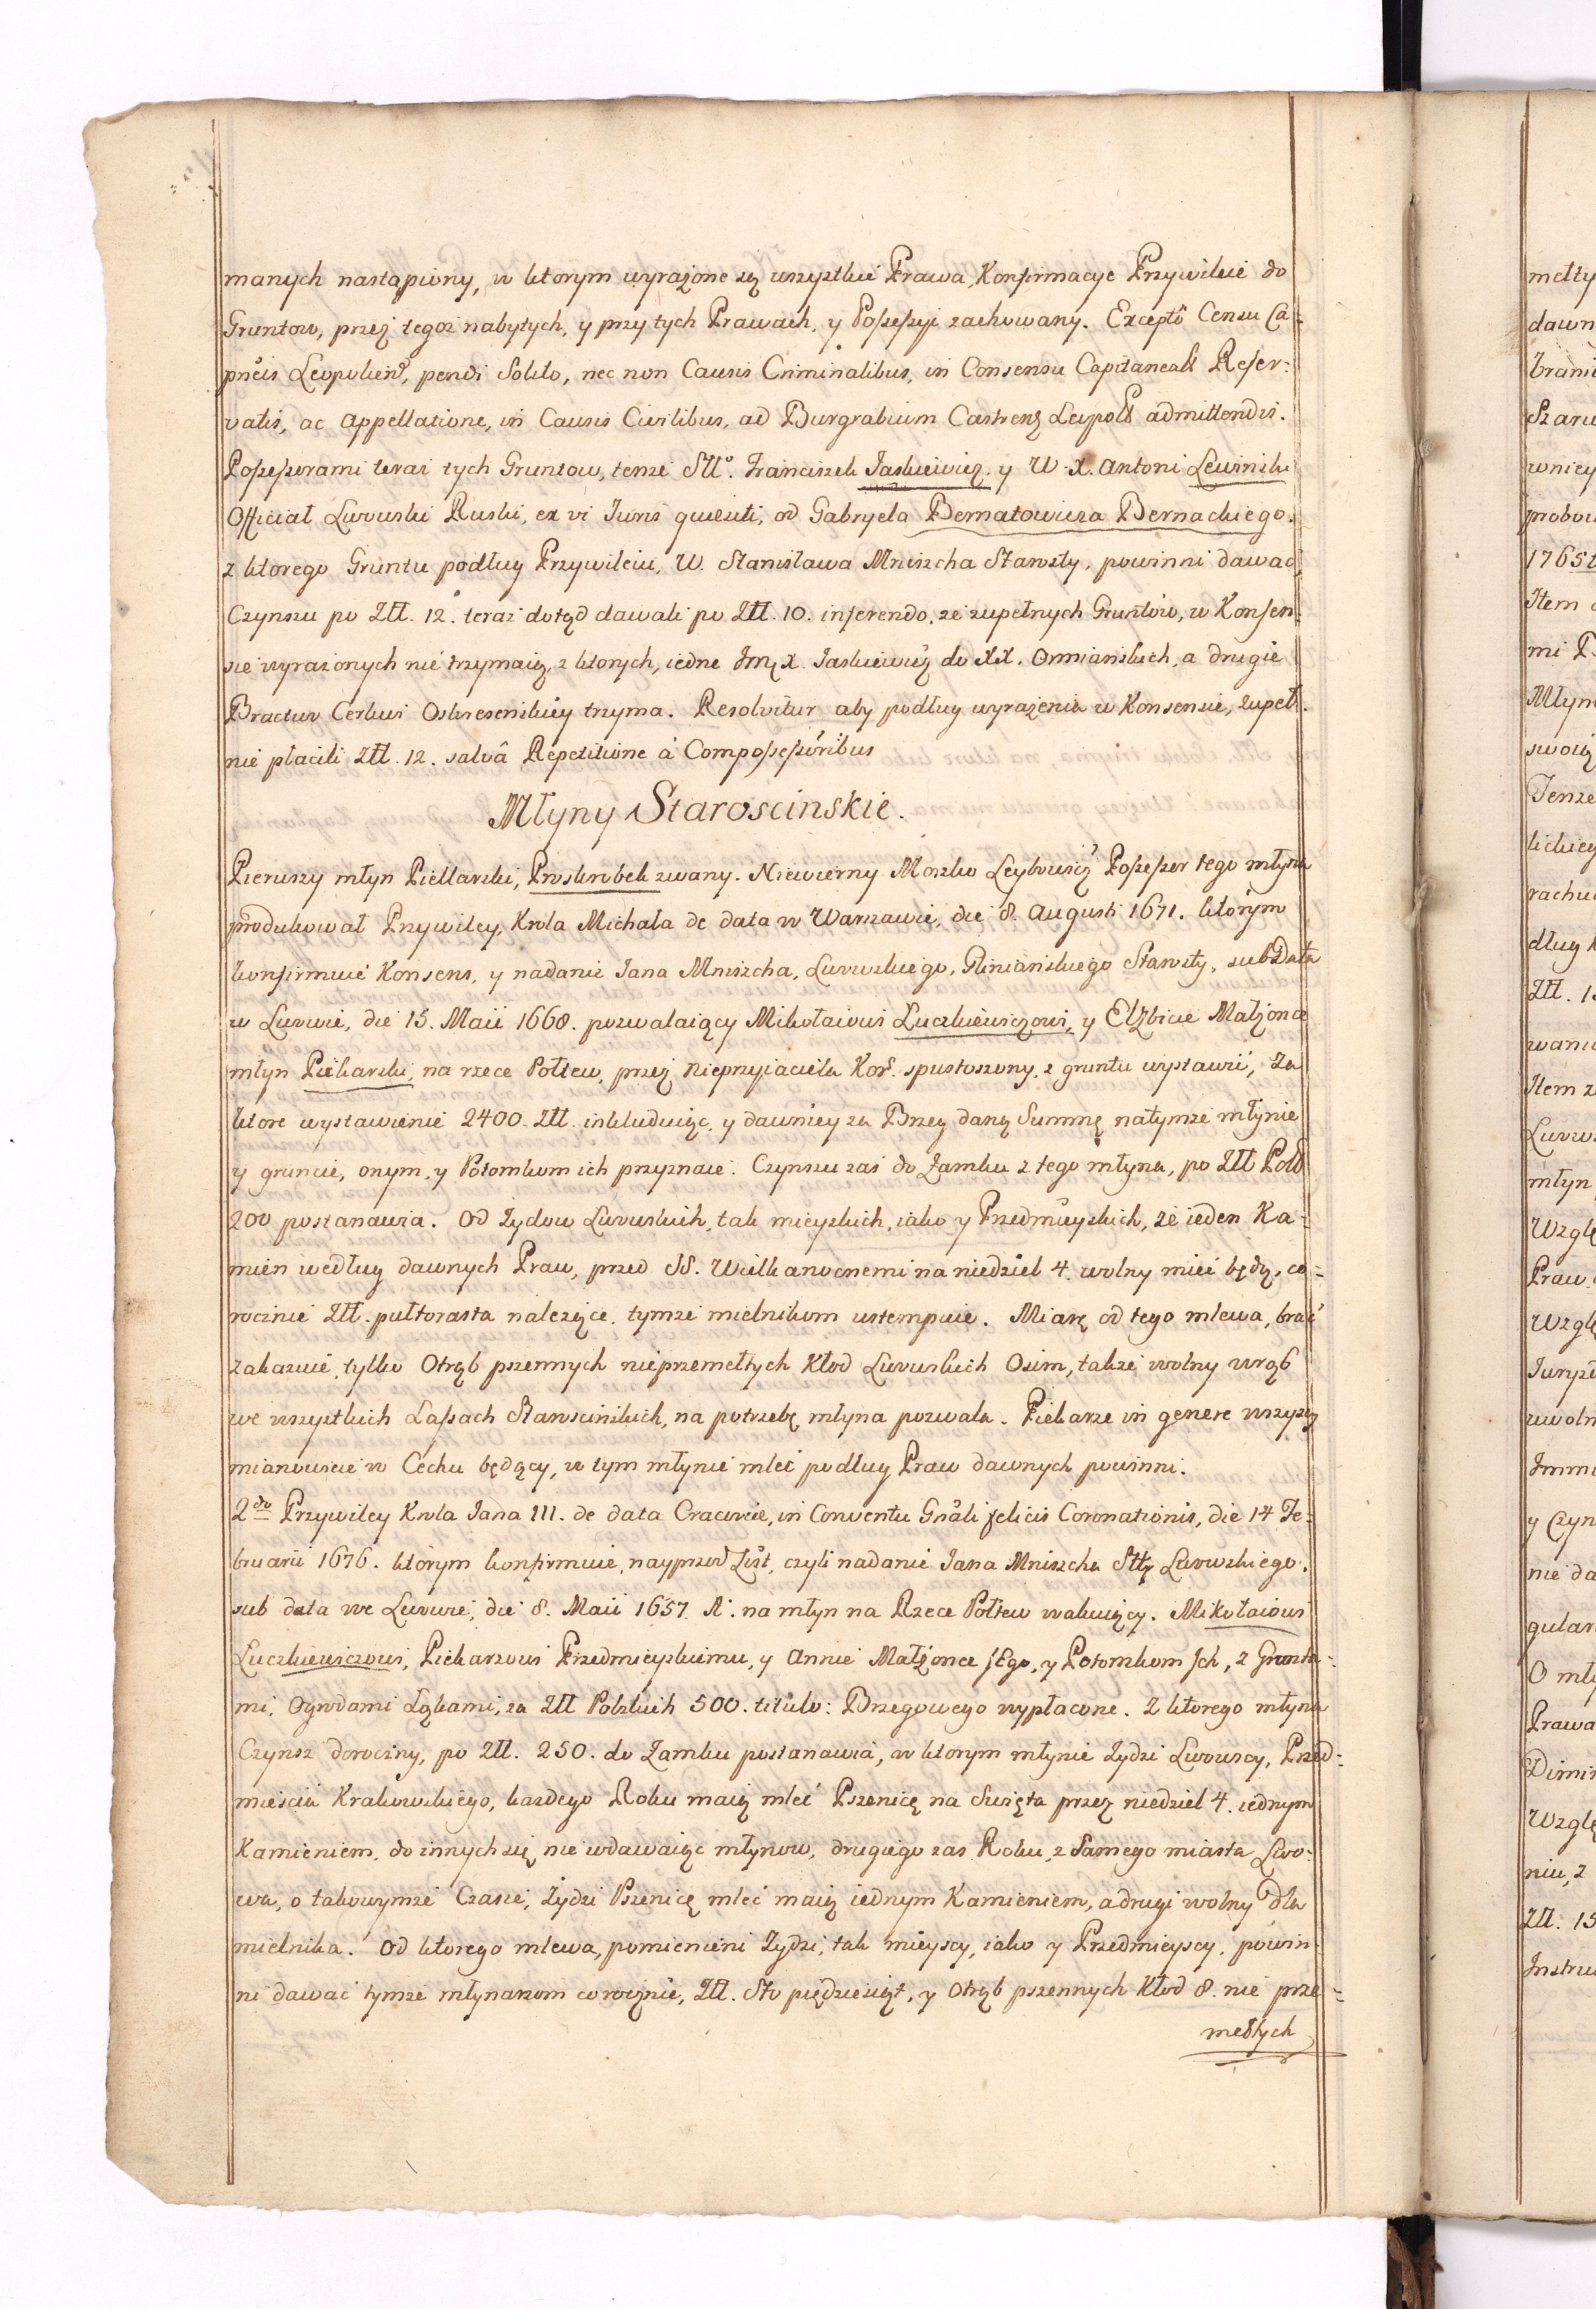 manych nastąpiony, w ktorym wyrażone są wszystkie Prawa, Konfirmacye Przywileie do
Gruntow, przez tegoż nabytych, y przy tych Prawach, y Possessyi zachowany. Exceptô Censu Ca-
pneis Leopolien, pendi Solito, nec non Causis Criminalibus, in Consensu Capitaneali Reser-
vatis, ac Appellatione, in Causis Civilibus, ad Burgrabium Castrens Leopold admittendis.
Possessorami teraz tych Gruntow, tenze Sttᵒ. Franciszek Jaskiewicz. y W. X. Antoni Lewinski
Official Lwowski Ruski, ex vi Juris quæsiti, od Gabryela Bernatowicza Bernackiego.
z ktorego Gruntu podług Przywileiu, W. Stanisława Mniszcha Starosty, powinni dawać
Czynszu po Złł. 12. teraz dotąd dawali po Złł. 10. inferendo, ze zupełnych Gruntów, w Konsen-
sie wyrażonych nie trzymaią, z ktorych, iedne Jmę X. Jaskiewicz do XX. Ormianskich, a drugie
Bractwo Cerkwi Oskresenskiey trzyma. Resolvitur aby podług wyrażenia w Konsensie, zupeł-
nie płacili Złł. 12. salvâ Repetitione à Compossessóribus
Młyny Staroscinskie.
Pierwszy młyn Piekarski, Proskrobek zwany. Niewierny Moszko Leybowicz Possessor tego młyna
produkował Przywiley, Krola Michała de data w Warszawie, die 8. Augusti 1671. którym
konfirmuie Konsens, y nadanie Jana Mniszcha, Lwowskiego, Gliniańskiego Starosty, sub Data
w Lwowie, die 15. Maii 1668. pozwalaiący Mikołaiowi Łuczkiewiczowi, y Elżbiecie Małżonce
młyn Piekarski, na rzece Połtew, przez Nieprzyiaciela Kor. spustoszony, z gruntu wystawić, za
ktore wystawienie 2400. Złł. inkluduiąc, y dawniey za Brzeg daną Summę natymże młynie
y gruncie, onym, y Potomkom ich przyznaie. Czynszu zaś do Zamku z tego młyna, po Złł Pols
200 postanawia. Od Żydow Lwowskich, tak mieyskich, iako y Przedmieyskich, że ieden Ka-
mien według dawnych Praw, przed SS. Wielkanocnemi na niedziel 4. wolny mieć będą, co-
rocznie Złł. pułtorasta należące, tymże mielnikom ustempuie. Miarę od tego mlewa, brać
zakazuie, tylko Otrąb pszennych nieprzemełtych Kłod Lwowskich Osim, także wolny wrąb
we wszystkich Lassach Staroscinskich, na potrzebę młyna pozwala. Piekarze in genere wszyscy
mianowicie w Cechu będący, w tym młynie mleć podług Praw dawnych powinni.
2do Przywiley Krola Jana III. de data Cracoviæ, in Conventu Gnali felicis Coronationis, die 14 Fe-
bruarii 1676. ktòrym konfirmuie, nayprzod List, czyli nadanie Jana Mniszcha Stty Lwowskiego.
sub data we Lwowie, die 8. Maii 1657. A. na młyn na Rzece Połtew wakuiący. Mikołaiowi
Łuczkiewiczowi, Piekarzowi Przedmieyskiemu, y Annie Małżonce JEgo, y Potomkom Jch, z Grunta-
mi, Ogrodami Łąkami, za Złł Polskich 500. titulo: Brzegowego wypłacone. Z ktorego młyna
Czynsz doroczny, po Złł. 250. do Zamku postanawia, w ktorym młynie Żydzi Lwowscy, Przed-
mieścia Krakowskiego, każdego Roku maią mleć Pszenicę na Święta przez niedziel 4. iednym
Kamieniem, do innych się nie wdawaiąc młynow, drugiego zas Roku, z Samego miasta Lwo-
wa, o takowymże Czasie, Żydzi Pszenicę mleć maią iednym Kamieniem, a drugi wolny dla
mielnika. Od ktorego mlewa, pomienieni Żydzi, tak mieyscy, iako y Przedmieyscy, powin-
ni dawać tymże młynarzom corocznie, Złł. Sto piędziesiąt, y Otrąb pszennych Kłod 8. nie prze-
mełtych